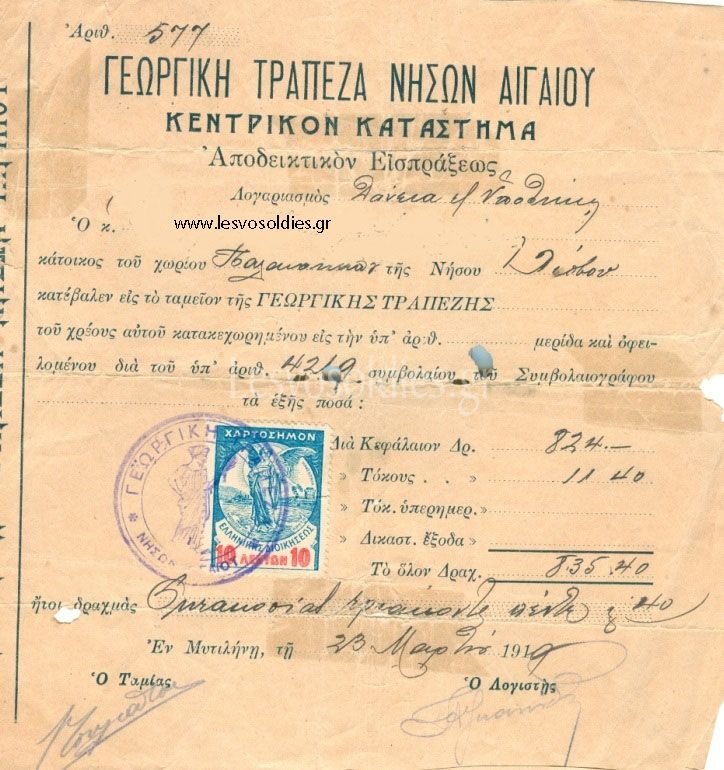 Ἀριθ. 577
ΓΕΩΡΓΙΚΗ ΤΡΑΠΕΖΑ ΝΗΣΩΝ ΑΙΓΑΙΟΥ
ΚΕΝΤΡΙΚΟΝ ΚΑΤΑΣΤΗΜΑ
Ἀποδεικτικὸν Εἰσπράξεως
Λογαριασμὸς Δάνεια
Ὁ κ.
www.lesvosoldies.gr
κάτοικος τοῦ χωρίου τῆς Νήσου Λέσβου
κατέβαλεν εἰς τὸ ταμεῖον τῆς ΓΕΩΡΓΙΚΗΣ ΤΡΑΠΕΖΗΣ
τοῦ χρέους αὐτοῦ κατακεχωρημένου εἰς τὴν ὑπ' ἀριθ. μερίδα καὶ ὀφει-
λομένου διὰ τοῦ ὑπ' ἀριθ. 4219 συμβολαίου τοῦ Συμβολαιογράφου
Lesvosoldies.gr
τὰ ἑξῆς ποσά:
Διὰ Κεφάλαιον Δρ. 824.-
» Τόκους . . » 11 40
» Τόκ. ὑπερημερ. »
» Δικαστ. ἔξοδα »
Τὸ ὅλον Δραχ. 835.40
ΓΕΩΡΓΙΚΗ
ΝΗΣΩΝ
ΧΑΡΤΟΣΗΜΟΝ
ΕΛΛΗΝΙΚΗΣ ΔΙΟΙΚΗΣΕΩΣ
10 ΛΕΠΤΩΝ 10
ἤτοι δραχμὰς Οκτακοσίαι τριάκοντα πέντε & 40
Ἐν Μυτιλήνῃ, τῇ 23 Μαρτίου 1919
Ὁ Ταμίας
Ὁ Λογιστὴς